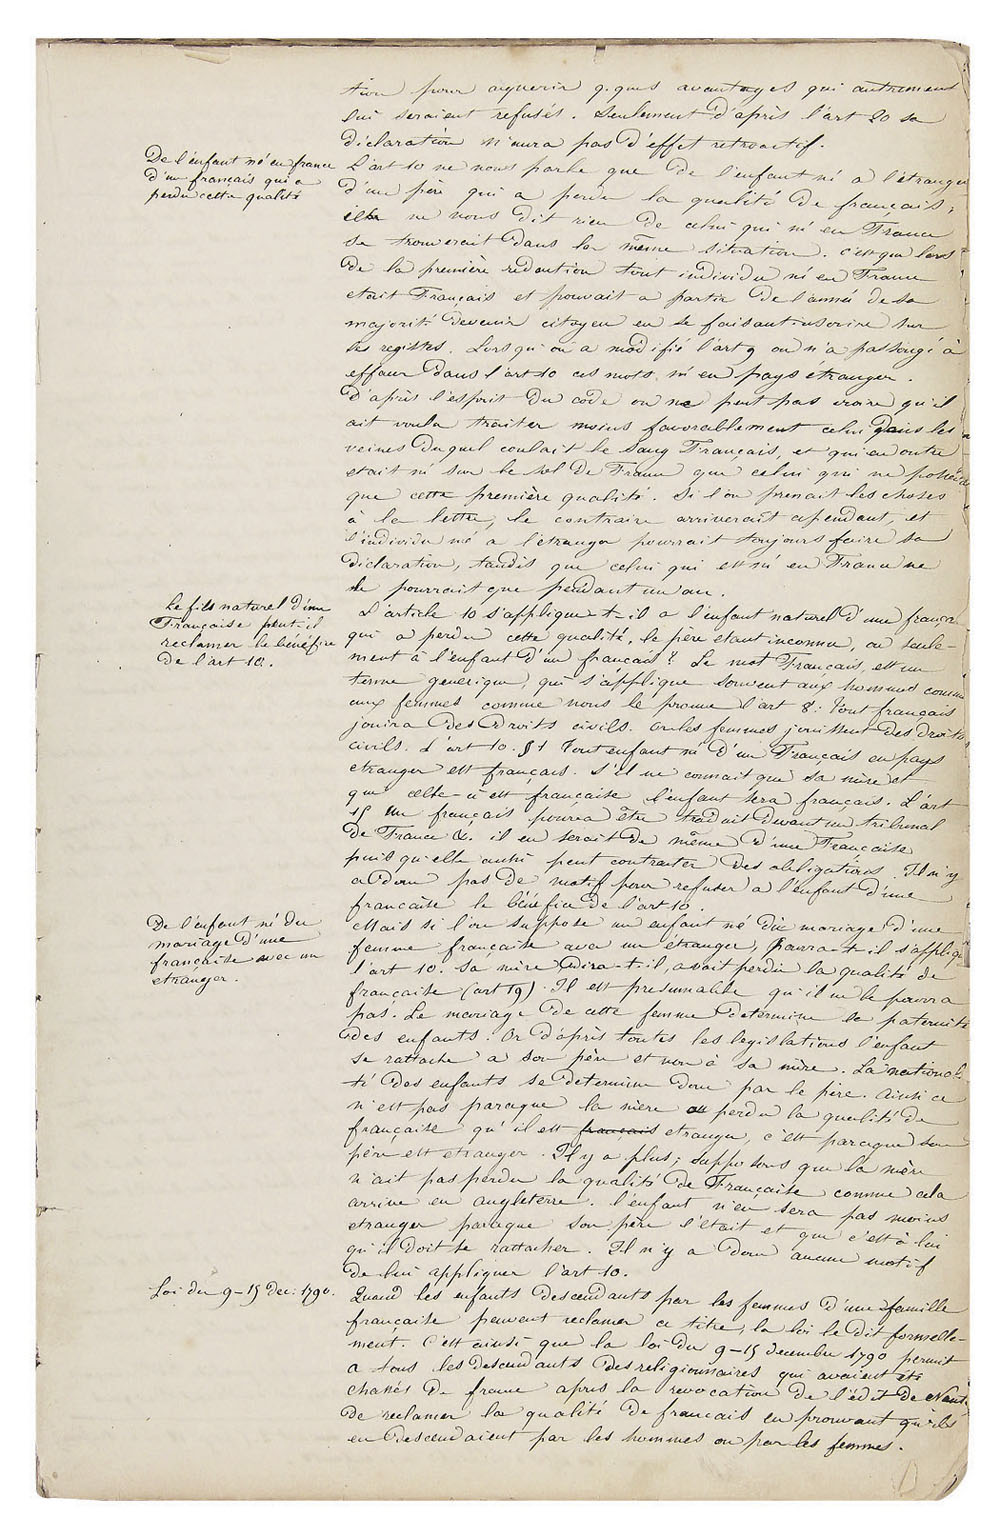 tion pour aquerir q.ques avantages qui autrement
lui seraient refusés. Seulement d'après l'art 20 sa
déclaration n'aura pas d'effet retroactif.
De l'enfant né en france
d'un français qui a
perdu cette qualité
L'art 10 ne nous parle que de l'enfant né a l'étranger
d'un père qui a perdu la qualité de français;
il ne nous dit rien de celui qui né en France
se trouverait dans la même situation. c'est que lors
de la première redaction tout individu né en France
etait Français et pouvait a partir de l'année de sa
majorité devenir citoyen en se faisant inscrire sur
les registres. Lorsqu'on a modifié l'art 9 on n'a pas songé à
effacer dans l'art 10 ces mots, né en pays etranger.
D'après l'esprit du code on ne peut pas croire qu'il
ait voulu traiter moins favorablement celui dans les
veines duquel coulait le sang Français, et qui en outre
etait né sur le sol de France que celui qui ne possède
que cette première qualité. Si l'on prenait les choses
à la lettre, le contraire arriverait cependant, et
l'individu né a l'étranger pourrait toujours faire sa
déclaration, tandis que celui qui est né en France ne
le pourrait que pendant un an.
Le fils naturel d'une
Française peut-il
reclamer le bénéfice
de l'art 10.
L'article 10 s'applique-t-il a l'enfant naturel d'une française
qui a perdu cette qualité, le père etant inconnu, ou seule-
ment à l'enfant d'un français? Le mot Français, est un
terme generique, qui s'applique souvent aux hommes comme
aux femmes comme nous le prouve l'art 8: Tout français
jouira des droits civils. Or les femmes jouissent des droits
civils. L'art 10. § 1 Tout enfant né d'un Français en pays
etranger est français. S'il ne connait que sa mère et
que celle-ci est française l'enfant sera français. L'art
15 Un français pourra être traduit devant un tribunal
de France &. il en serait de même d'une Française
puisqu'elle aussi peut contracter des obligations. Il n'y
a donc pas de motif pour refuser a l'enfant d'une
française le bénéfice de l'art 10.
De l'enfant né du
mariage d'une
française avec un
etranger.
Mais si l'on suppose un enfant né du mariage d'une
femme française avec un etranger, pourra-t-il s'appliquer
l'art 10. Sa mère dira-t-il, avait perdu la qualité de
française (art 19). Il est presumable qu'il ne le pourra
pas. Le mariage de cette femme determine la paternité
des enfants. Or d'après toutes les legislations l'enfant
se rattache a son père et non à sa mère. La national-
té des enfants se determine donc par le père. Ainsi ce
n'est pas parceque la mère a perdu la qualité de
française qu'il est français etranger, c'est parceque son
père est etranger. Il y a plus; supposons que la mère
n'ait pas perdu la qualité de Française comme cela
arrive en angleterre. l'enfant n'en sera pas moins
etranger parceque son père l'était et que c'est à lui
qu'il doit se rattacher. Il n'y a donc aucun motif
de lui appliquer l'art 10.
Loi du 9-15 Dec: 1790.
Quand les enfants descendants par les femmes d'une famille
française peuvent reclamer ce titre, la loi le dit formelle-
ment. C'est ainsi que la loi du 9-15 decembre 1790 permit
a tous les descendants des religionnaires qui avaient été
chassés de france apres la revocation de l'édit de Nantes
de reclamer la qualité de francais en prouvant qu'ils
en descendaient par les hommes ou par les femmes.